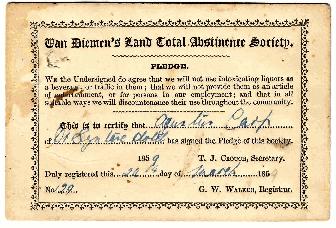 Van Diemen's Land Total Abstinence Society.
PLEDGE.
We the Undersigned do agree that we will not use intoxicating liquors as
a beverage, or traffic in them; that we will not provide them as an article
of entertainment, or for persons in our employment; and that in all
suitable ways we will discountenance their use throughout the community.
This is to certify that
of has signed the Pledge of this Society.
1859 T. J. CROUCH, Secretary.
Duly registered this 22 day of March 1859
No. 129. G. W. WALKER, Registrar.